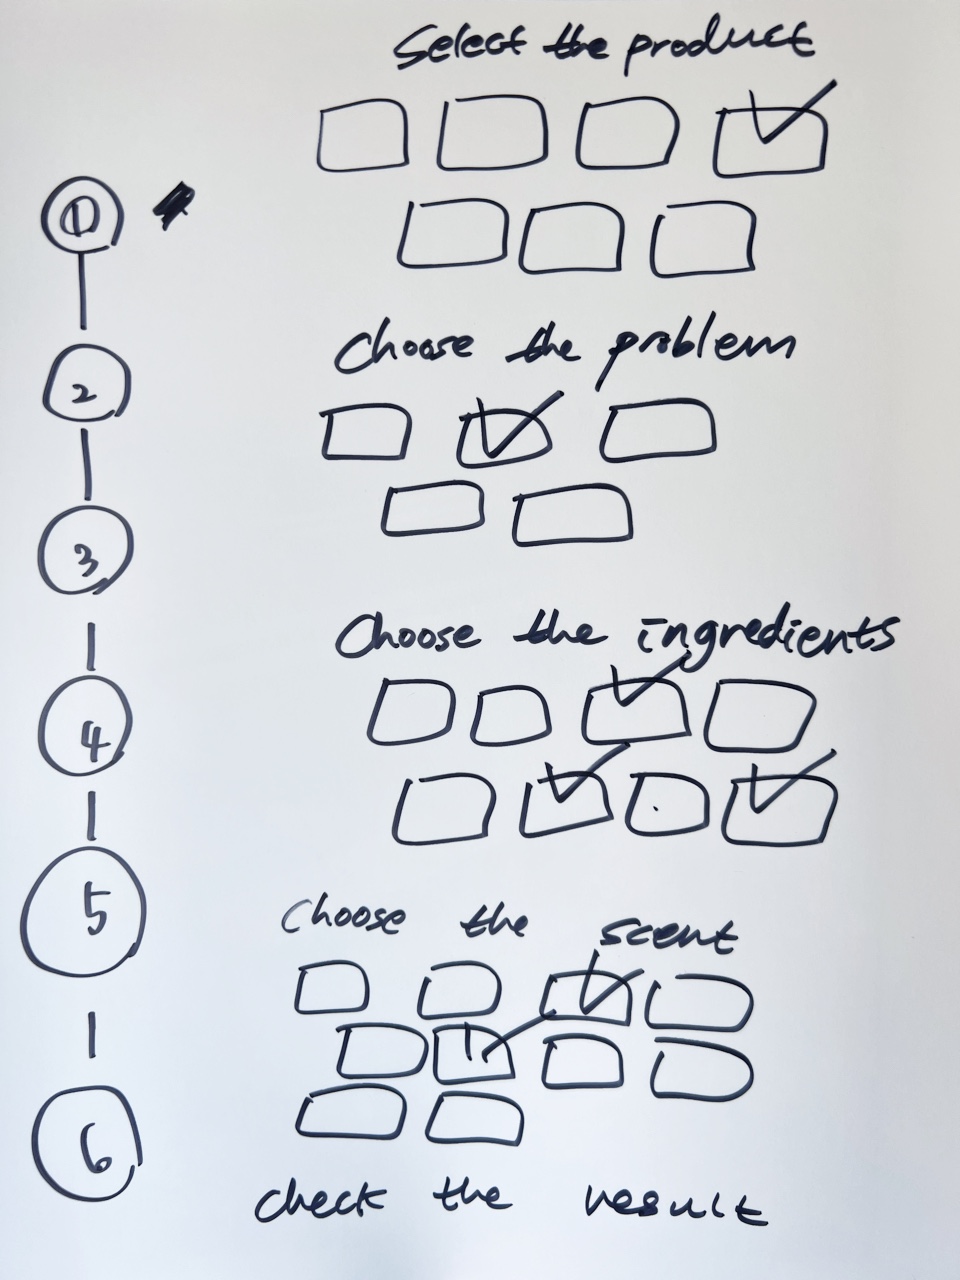 Select the product
1
Choose the problem
2
3
Choose the ingredients
4
5
Choose the scent
6
check the result